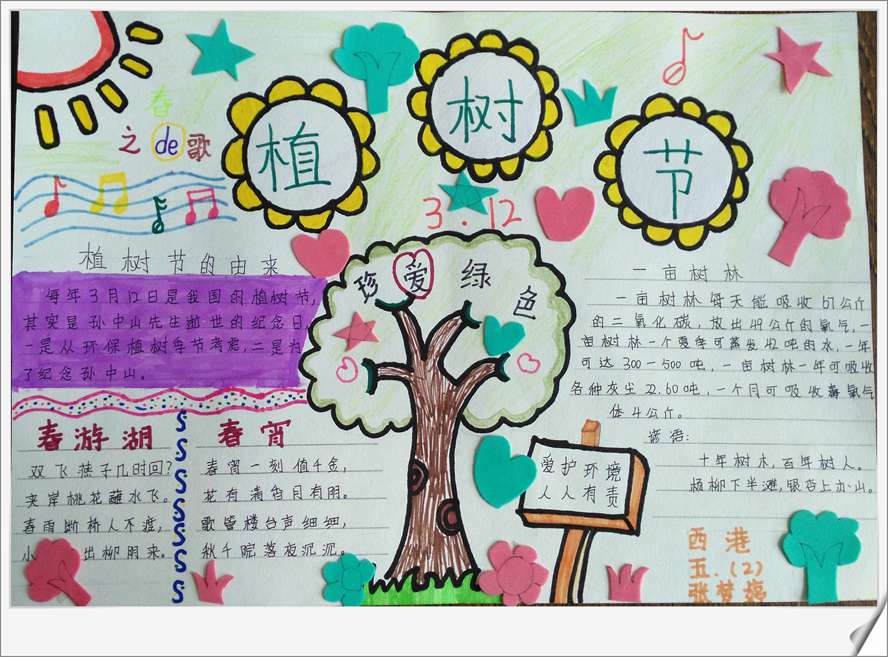 植
树
节
3.12
春
之de歌
植树节的由来
每年3月12日是我国的植树节,
其实是孙中山先生逝世的纪念日,
一是从环保植树季节考虑,二是为
了纪念孙中山。
珍爱绿色
一亩树林
一亩树林每天能吸收67公斤
的二氧化碳,放出49公斤的氧气,一
亩树林一个夏季可蒸发42吨的水,一年
可达300—500吨,一亩树林一年可吸收
各种灰尘22.60吨,一个月可吸收毒氧气
体4公斤。
谚语:
十年树木,百年树人。
杨柳下半滩,银杏上办山。
春游湖
双飞燕子几时回?
夹岸桃花蘸水飞。
春雨断桥人不渡,
小 出柳阴来。
春宵
春宵一刻值千金,
花有清香月有阴。
歌管楼台声细细,
秋千院落夜沉沉。
爱护环境
人人有责
西港
五.(2)
张梦婷